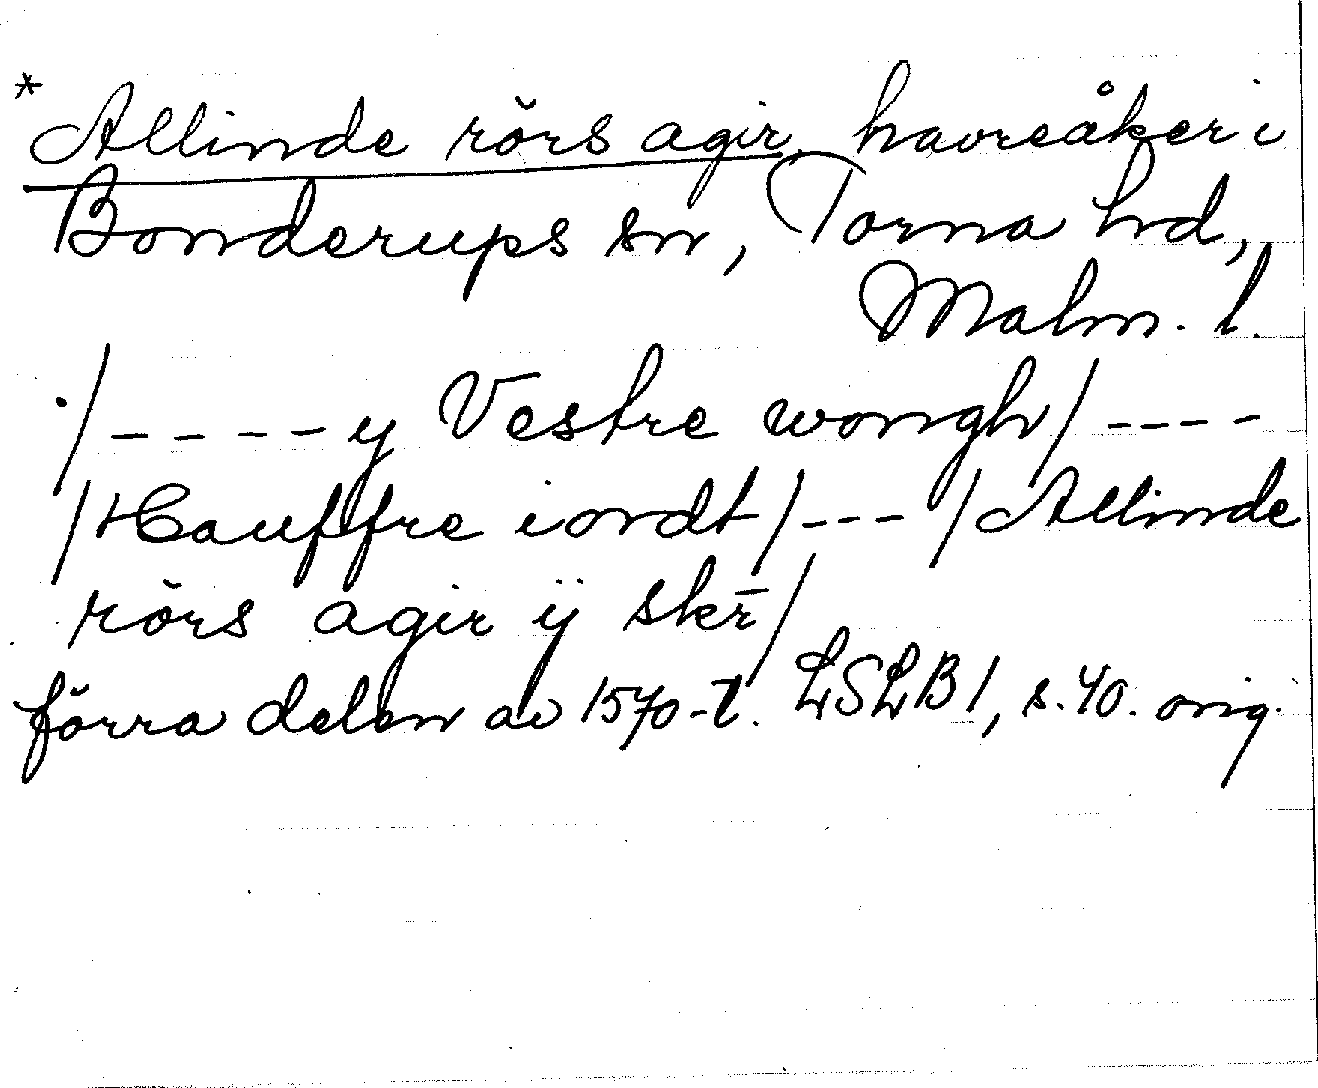 * Allinde rörs agir, havreåker i
Bonderups sn, Torna hd,
Malm. l.
/---- y Vestre wongh/ ----
/Hauffre iordt/ --- /Allinde
rörs agir ÿ skr̄/
förra delen av 1570-t. LSLB 1, s. 40. orig.